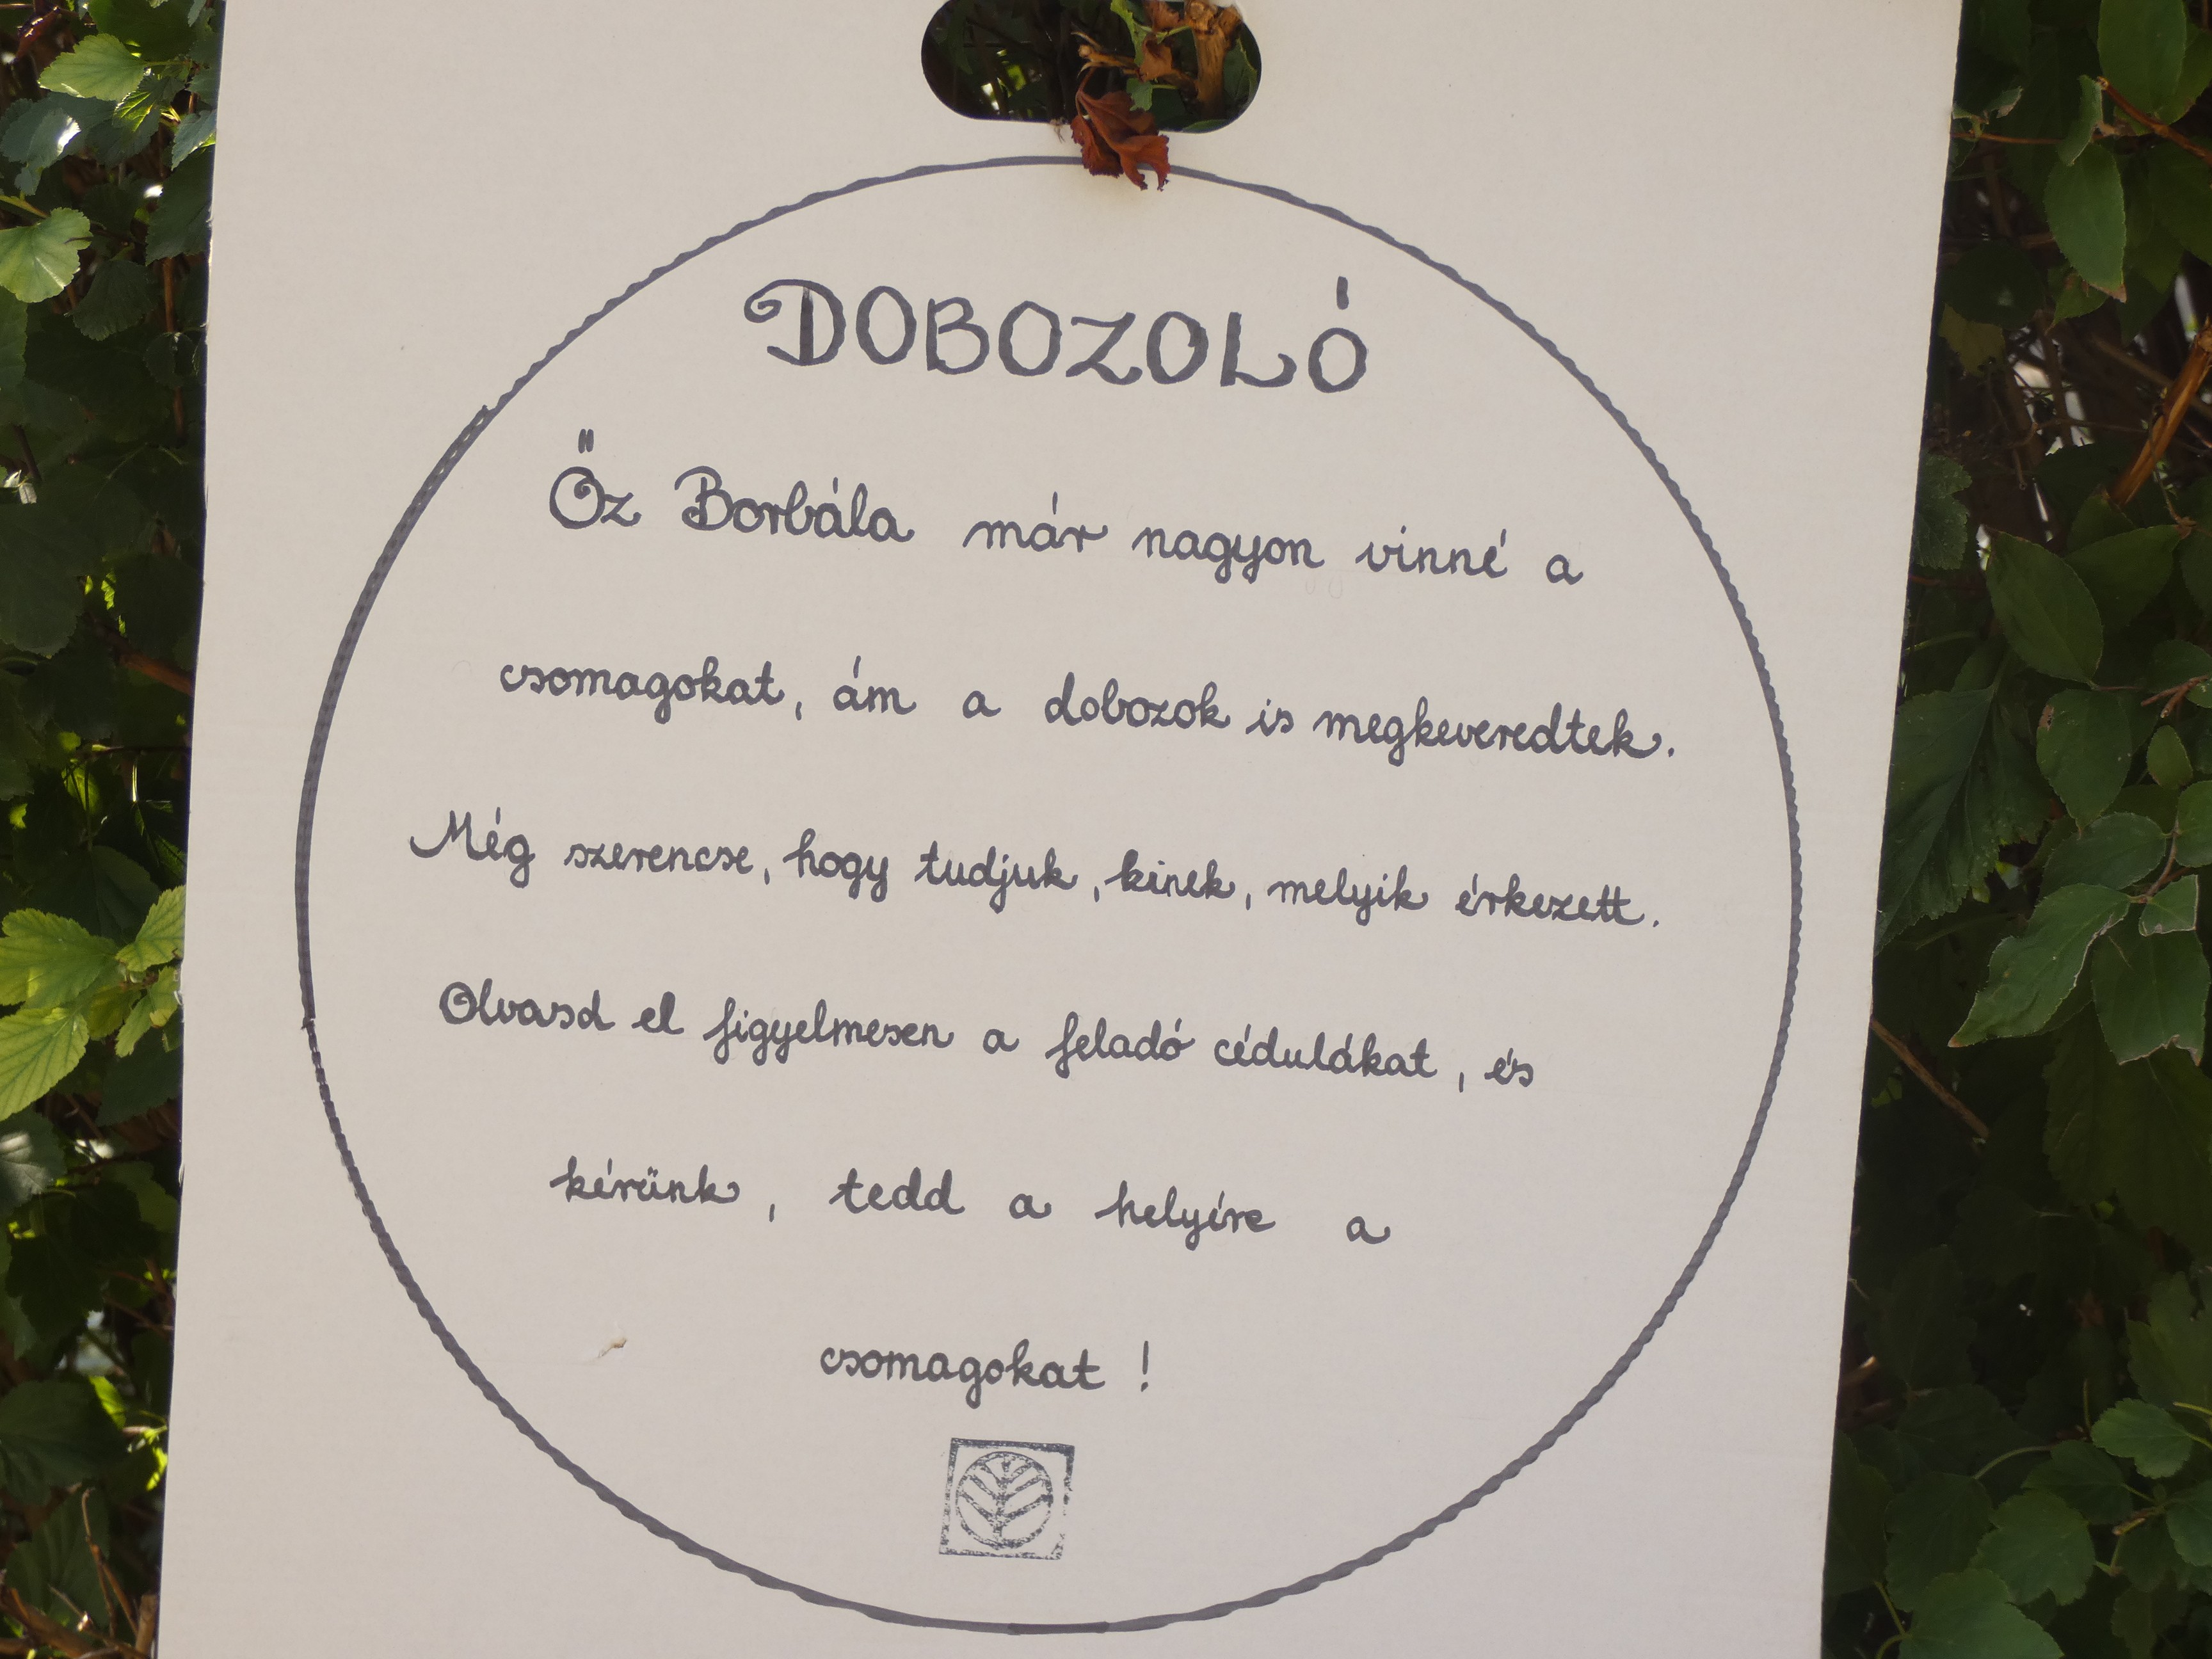 DOBOZOLÓ
Őz Borbála már nagyon vinné a
csomagokat, ám a dobozok is megkeveredtek.
Még szerencse, hogy tudjuk, kinek, melyik érkezett.
Olvasd el figyelmesen a feladó cédulákat, és
kérünk, tedd a helyére a
csomagokat!